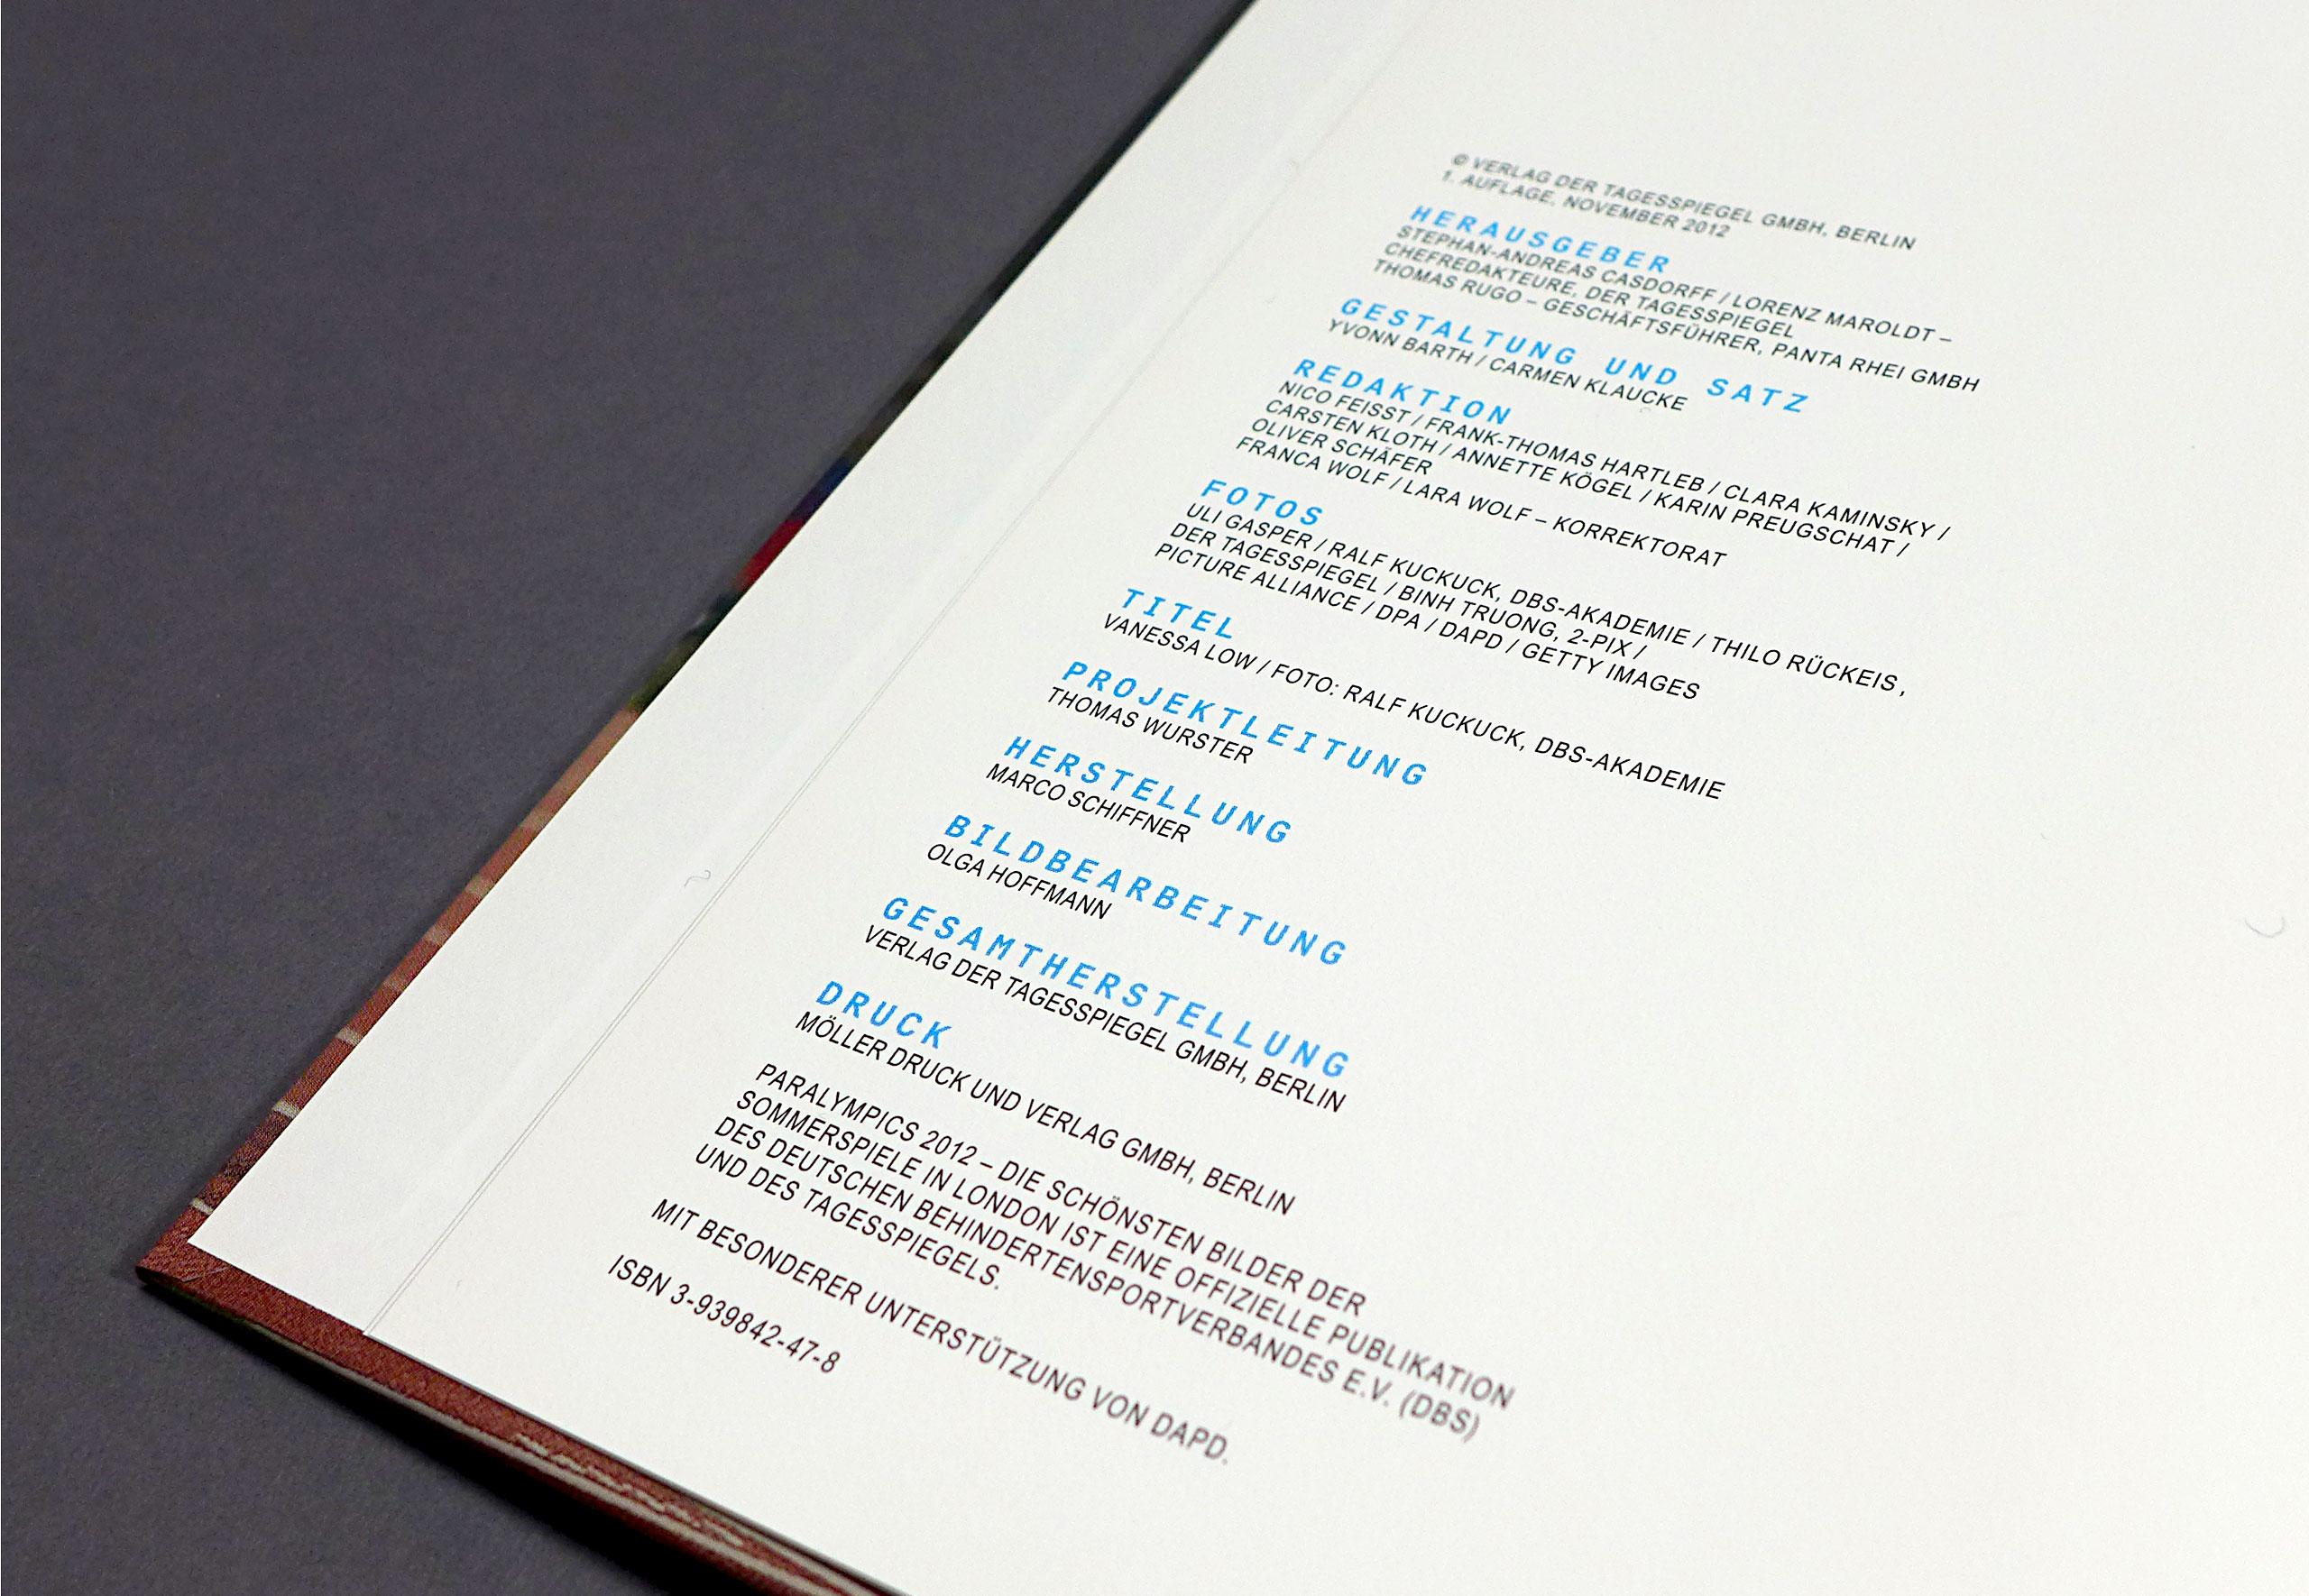 © VERLAG DER TAGESSPIEGEL GMBH, BERLIN
1. AUFLAGE, NOVEMBER 2012
HERAUSGEBER
STEPHAN-ANDREAS CASDORFF / LORENZ MAROLDT –
CHEFREDAKTEURE, DER TAGESSPIEGEL
THOMAS RUGO – GESCHÄFTSFÜHRER, PANTA RHEI GMBH
GESTALTUNG UND SATZ
YVONN BARTH / CARMEN KLAUCKE
REDAKTION
NICO FEISST / FRANK-THOMAS HARTLEB / CLARA KAMINSKY /
CARSTEN KLOTH / ANNETTE KÖGEL / KARIN PREUGSCHAT /
OLIVER SCHÄFER
FRANCA WOLF / LARA WOLF – KORREKTORAT
FOTOS
ULI GASPER / RALF KUCKUCK, DBS-AKADEMIE / THILO RÜCKEIS,
DER TAGESSPIEGEL / BINH TRUONG, 2-PIX /
PICTURE ALLIANCE / DPA / DAPD / GETTY IMAGES
TITEL
VANESSA LOW / FOTO: RALF KUCKUCK, DBS-AKADEMIE
PROJEKTLEITUNG
THOMAS WURSTER
HERSTELLUNG
MARCO SCHIFFNER
BILDBEARBEITUNG
OLGA HOFFMANN
GESAMTHERSTELLUNG
VERLAG DER TAGESSPIEGEL GMBH, BERLIN
DRUCK
MÖLLER DRUCK UND VERLAG GMBH, BERLIN
PARALYMPICS 2012 – DIE SCHÖNSTEN BILDER DER
SOMMERSPIELE IN LONDON IST EINE OFFIZIELLE PUBLIKATION
DES DEUTSCHEN BEHINDERTENSPORTVERBANDES E.V. (DBS)
UND DES TAGESSPIEGELS.
MIT BESONDERER UNTERSTÜTZUNG VON DAPD.
ISBN 3-939842-47-8